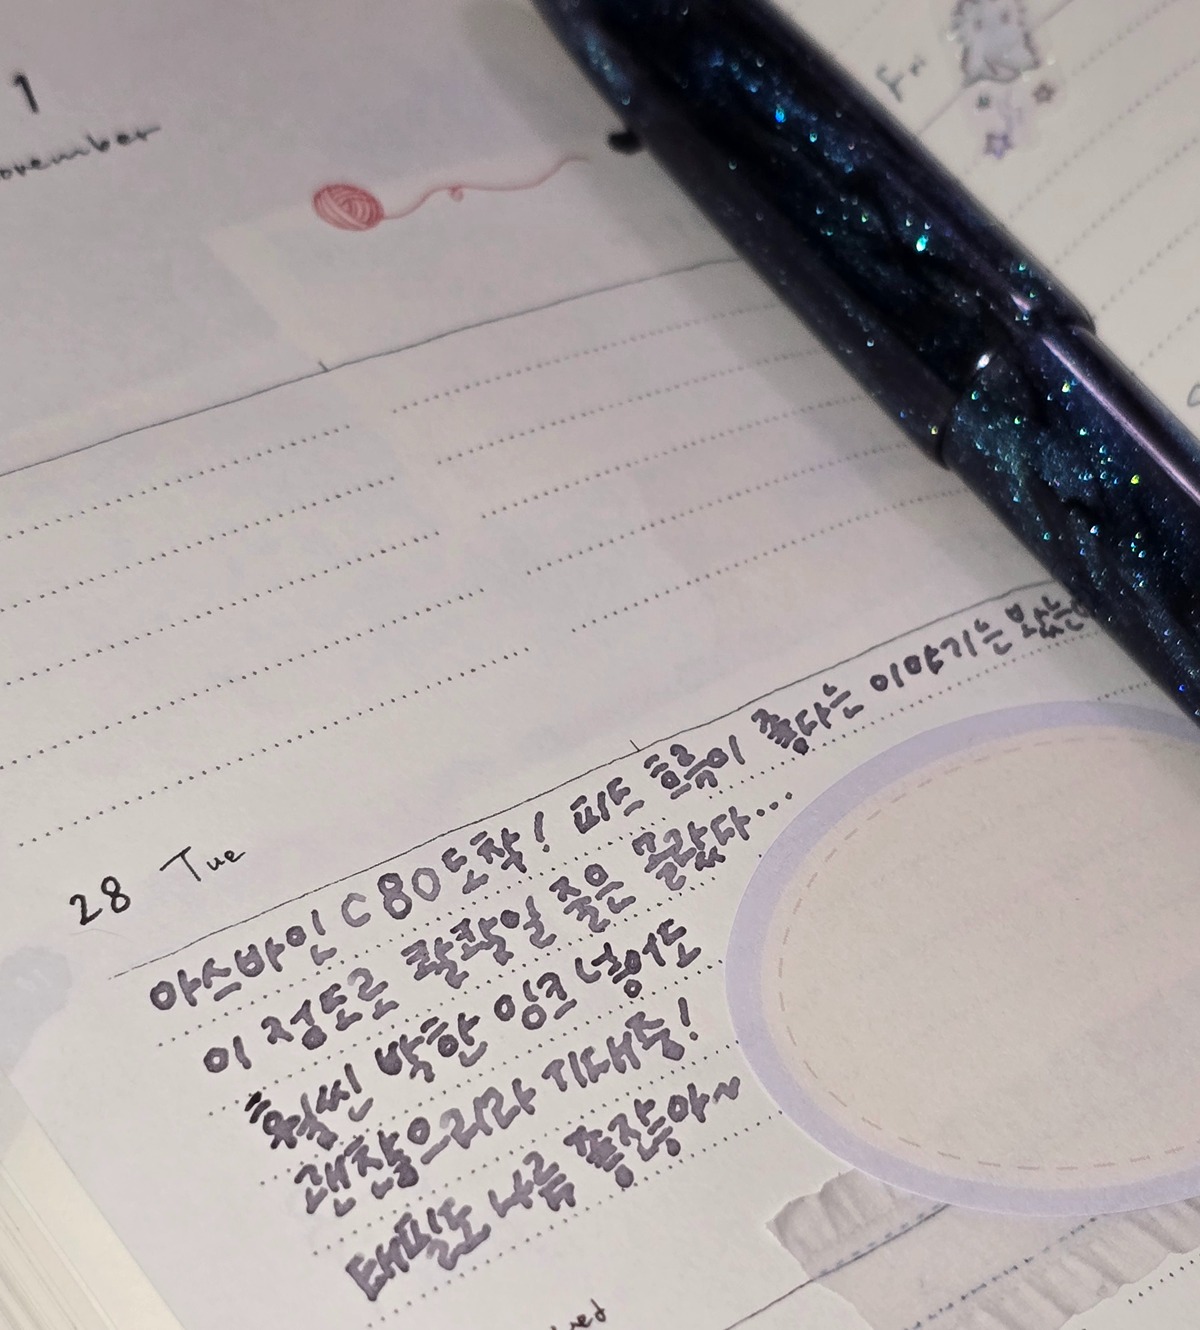 1
November
Fri
28 Tue
아스바인 C80 도착! 피드 흐름이 좋다는 이야기는 봤는
이 정도로 콸콸일 줄은 몰랐다...
훨씬 박한 잉크 넣어도
괜찮으리라 기대중!
태필도 나름 좋잖아~